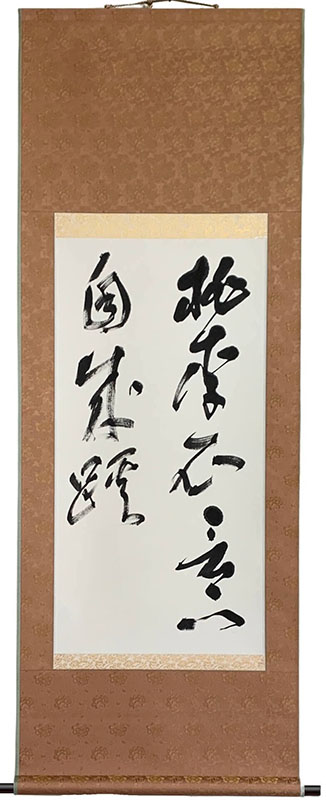 桃李不言下
自成蹊